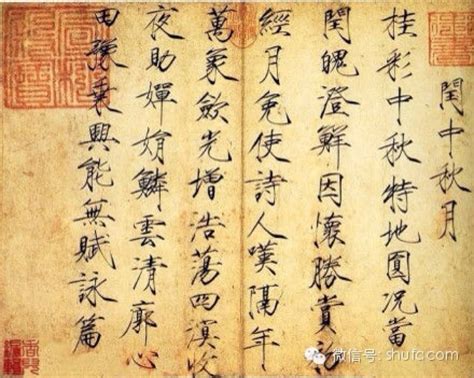 閏中秋月
桂彩中秋特地圓况當
閏魄澄鮮因懷勝賞初
經月免使詩人嘆隔年
萬象歛光增浩蕩四溟收
夜助嬋娟鱗雲清廓心
田豫乘興能無賦詠篇
微信号: